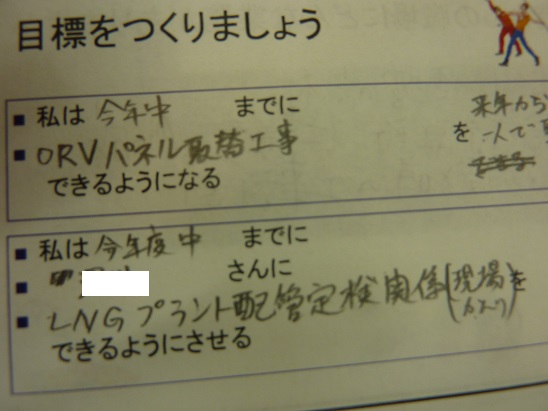 目標をつくりましょう
■ 私は 今年中 までに
来年から
■ ORVパネル取替工事 を 一人で
できるようになる
■ 私は 今年度中 までに
■ さんに
■ LNGプラント配管定検関係(現場ガスケ)を
できるようにさせる